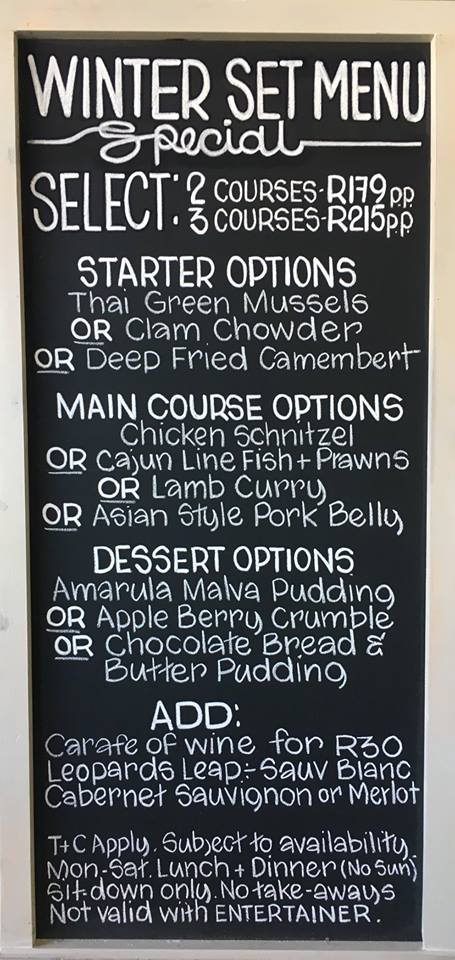 WINTER SET MENU
Special
SELECT: 2 COURSES-R179pp
3 COURSES-R215p.p
STARTER OPTIONS
Thai Green Mussels
OR Clam Chowder
OR Deep Fried Camembert
MAIN COURSE OPTIONS
Chicken Schnitzel
OR Cajun Line Fish + Prawns
OR Lamb Curry
OR Asian Style Pork Belly
DESSERT OPTIONS
Amarula Malva Pudding
OR Apple Berry Crumble
OR Chocolate Bread &
Butter Pudding
ADD:
Carafe of wine for R30
Leopards Leap:- Sauv Blanc
Cabernet Sauvignon or Merlot
T+C Apply. Subject to availability.
Mon.-Sat. Lunch + Dinner (No Sun)
Sit-down only. No take-aways
Not valid with ENTERTAINER.